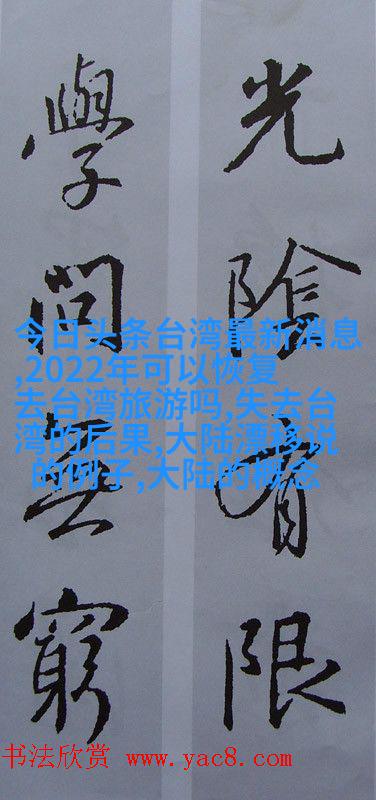 光陰有限
學問無窮
今日头条台湾最新消息
,2022年可以恢复
去台湾旅游吗,失去台
湾的后果,大陆漂移说
的例子,大陆的概念
书法欣赏 www.yac8.com